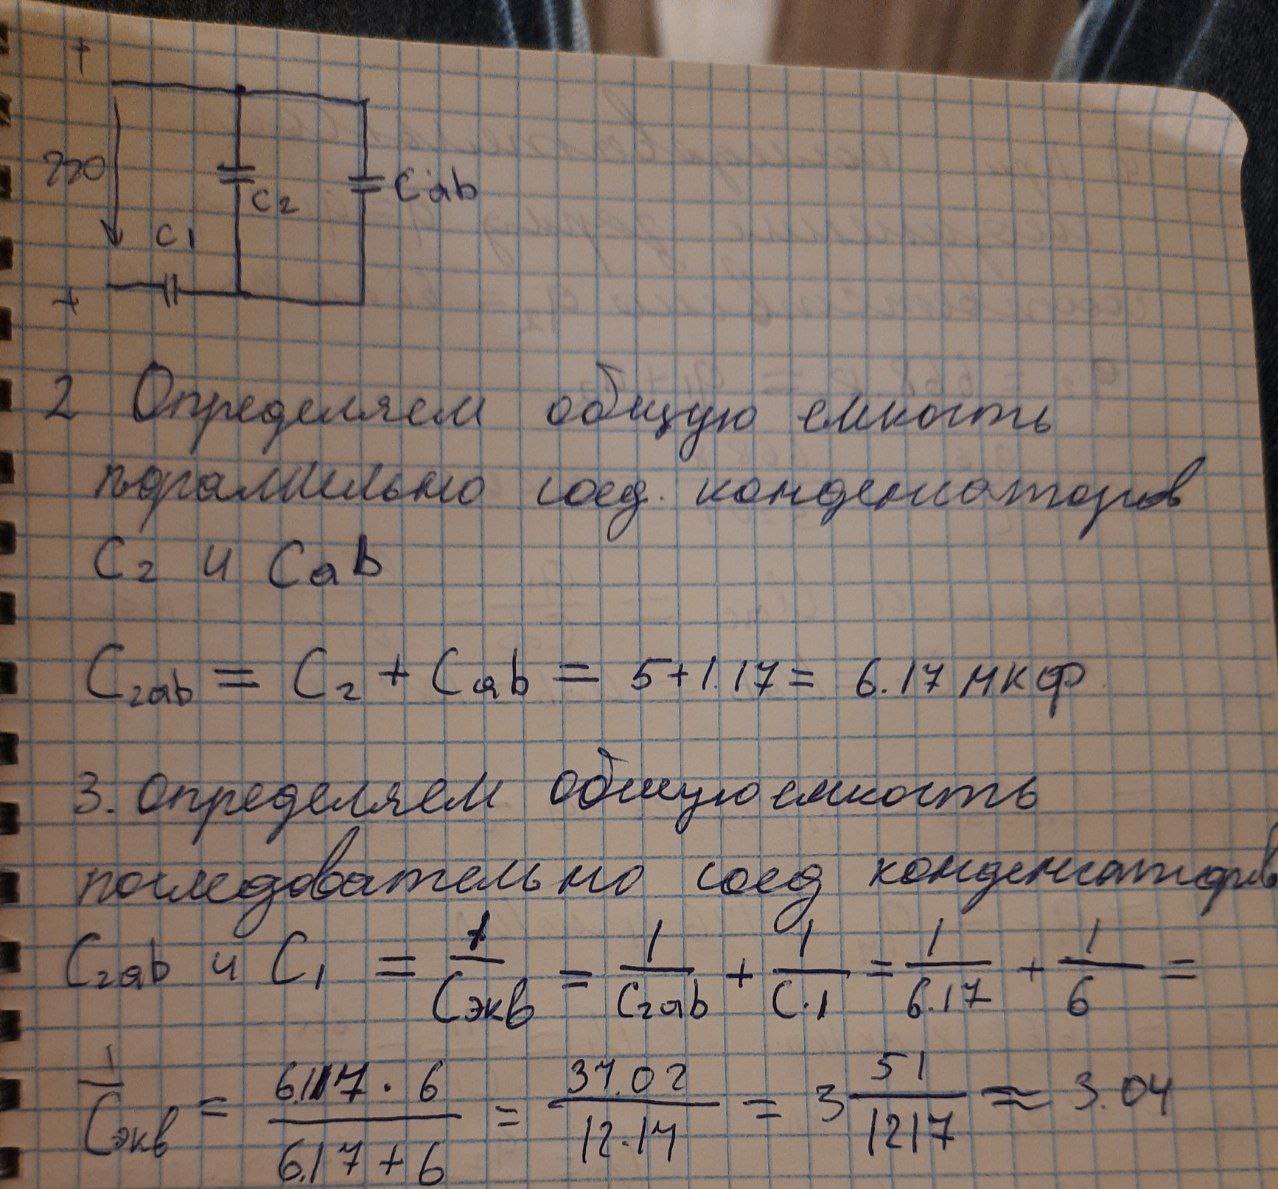 +
220
C2
Cab
C1
+
2 Определяем общую емкость
поралнльно соед. конденсаторов
C2 и Cab
C2ab = C2 + Cab = 5+1.17 = 6.17 мкф
3. Определяем общую емкость
последовательно соед конденсаторов
C2ab и C1 = 1/Cэкв = 1/C2ab + 1/C.1 = 1/6.17 + 1/6 =
1/Cэкв = 6.17 · 6 / 6.17 + 6 = 37.02 / 12.17 = 3 51/1217 ≈ 3.04